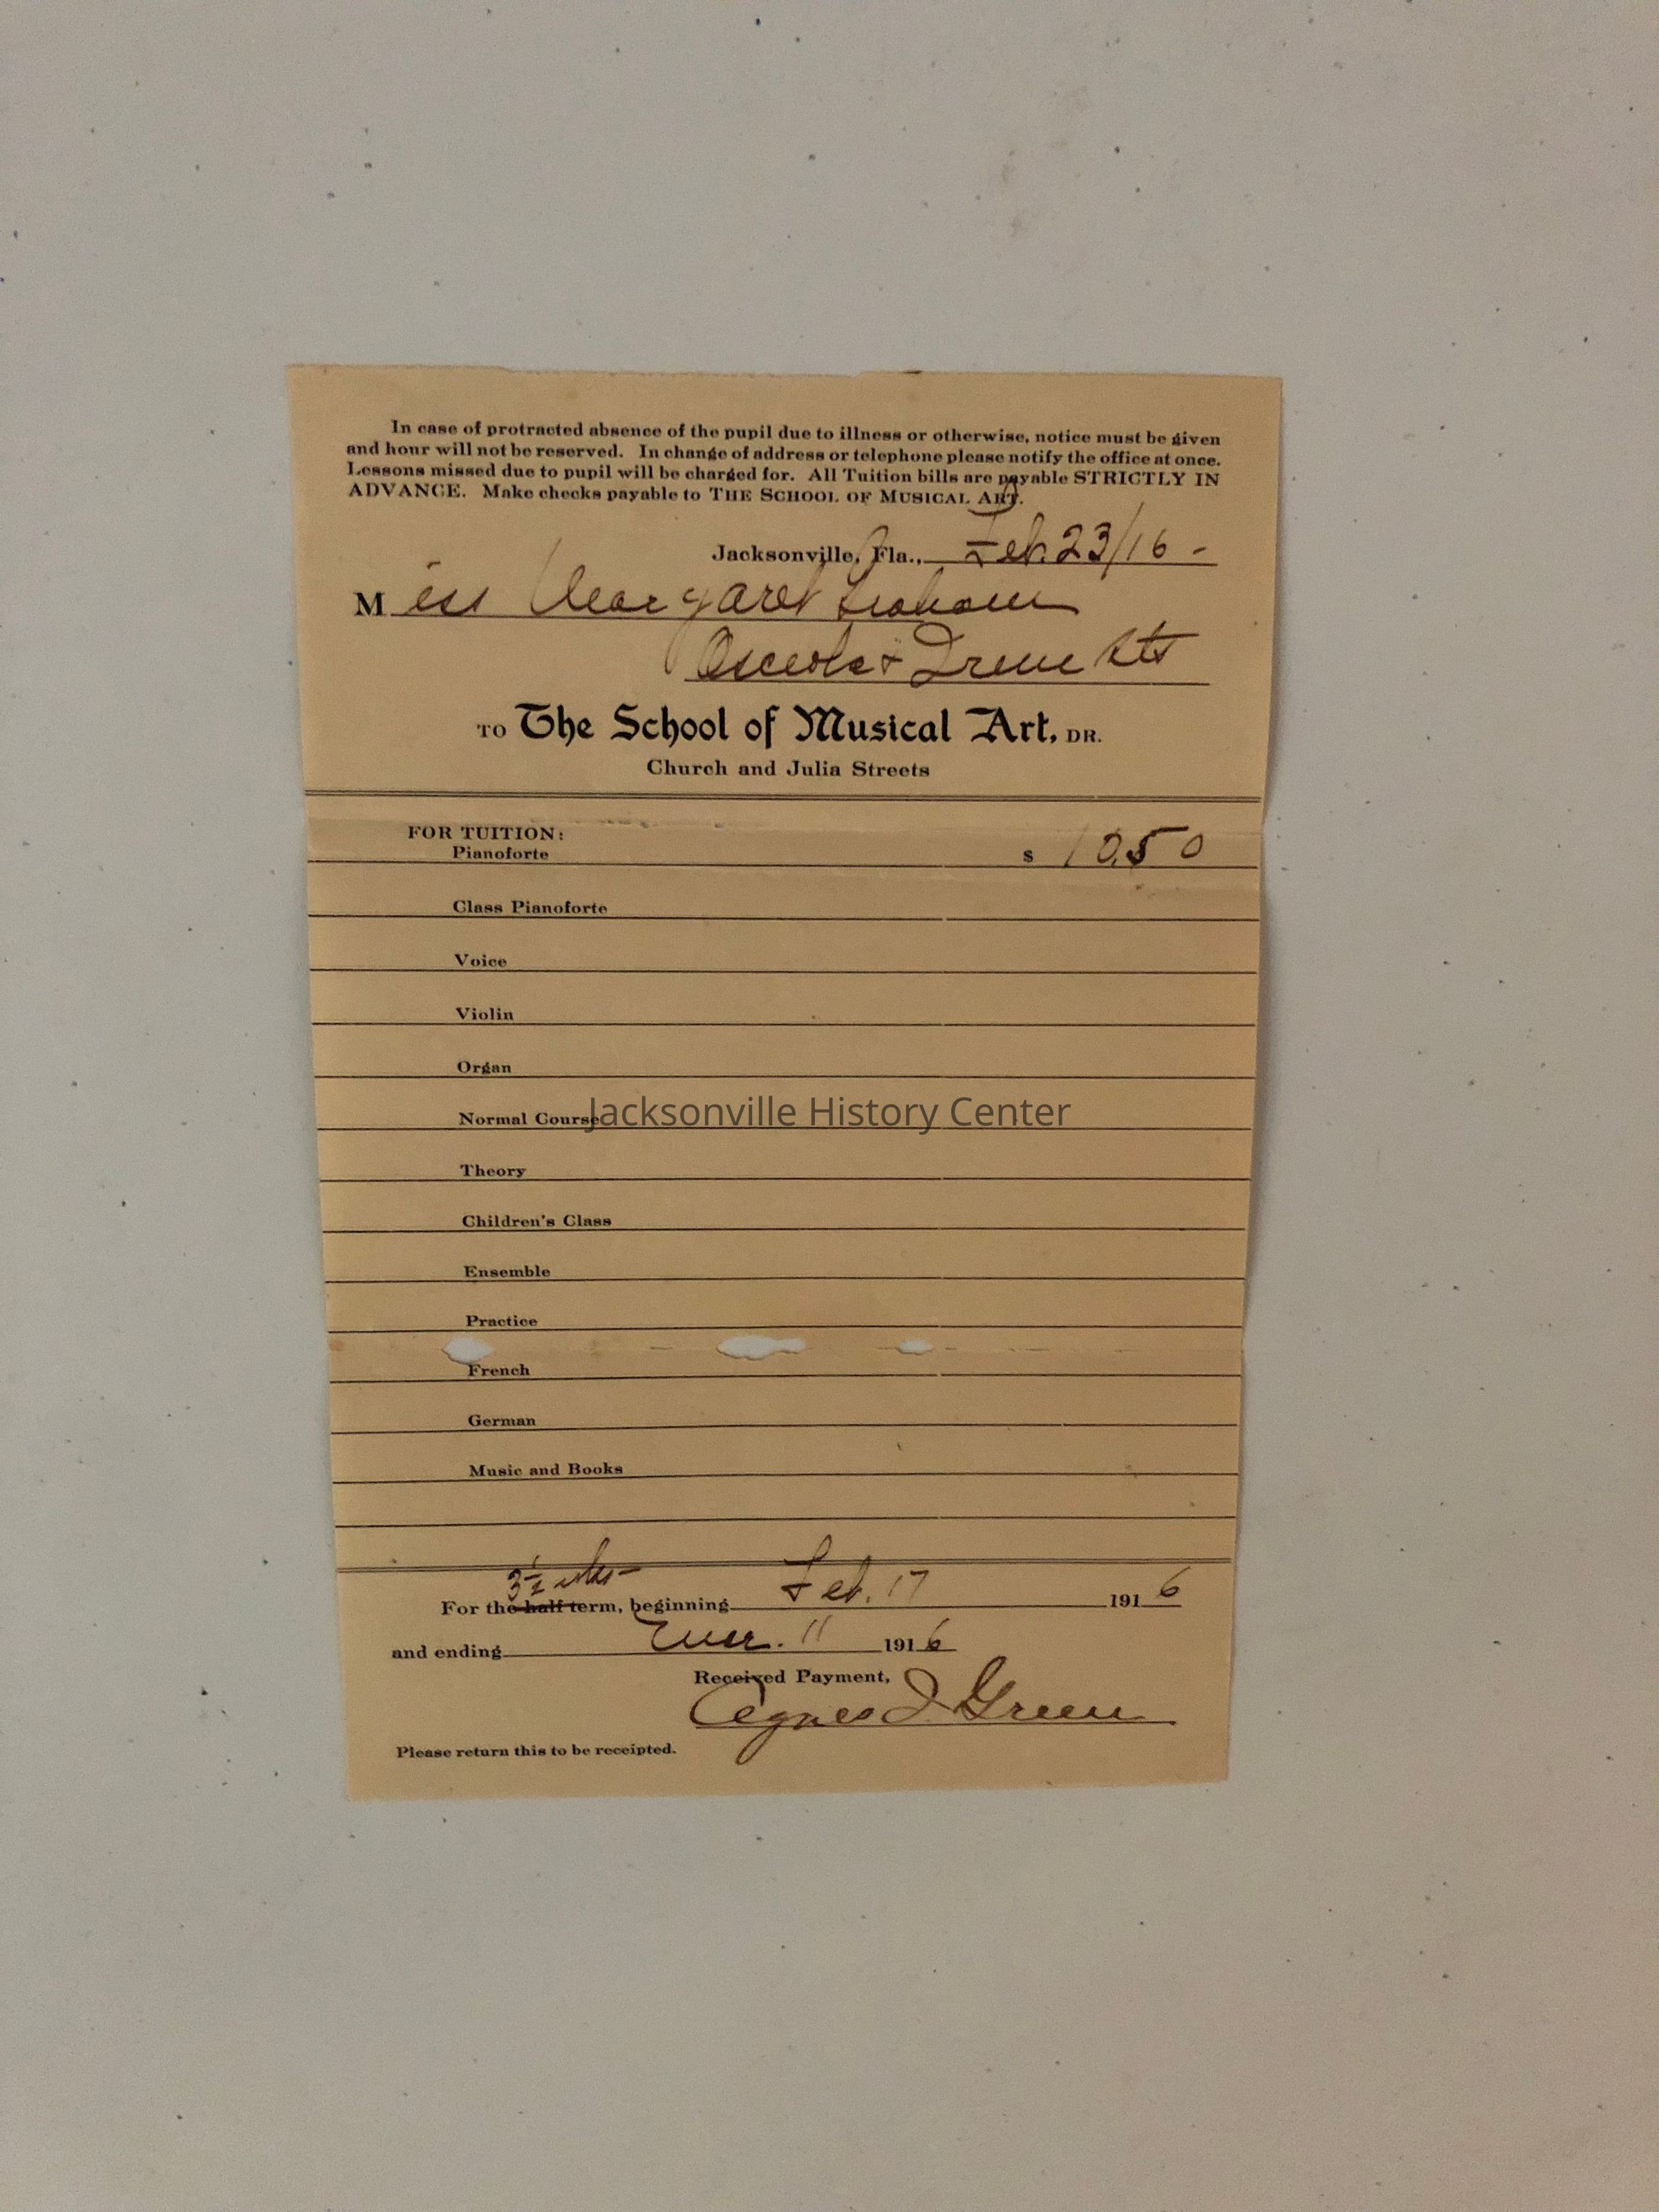 In case of protracted absence of the pupil due to illness or otherwise, notice must be given
and hour will not be reserved. In change of address or telephone please notify the office at once.
Lessons missed due to pupil will be charged for. All Tuition bills are payable STRICTLY IN
ADVANCE. Make checks payable to THE SCHOOL OF MUSICAL ART.
Jacksonville, Fla., Feb. 23/16 -
Miss Margaret Graham
Osceola & Irene Sts
TO The School of Musical Art, DR.
Church and Julia Streets
FOR TUITION:
Pianoforte $ 10.50
Class Pianoforte
Voice
Violin
Organ
Normal Course
Jacksonville History Center
Theory
Children's Class
Ensemble
Practice
French
German
Music and Books
3 1/2 wks
For the half term, beginning Feb. 17 1916
and ending Mar. 11 1916
Received Payment,
Agnes I Green
Please return this to be receipted.